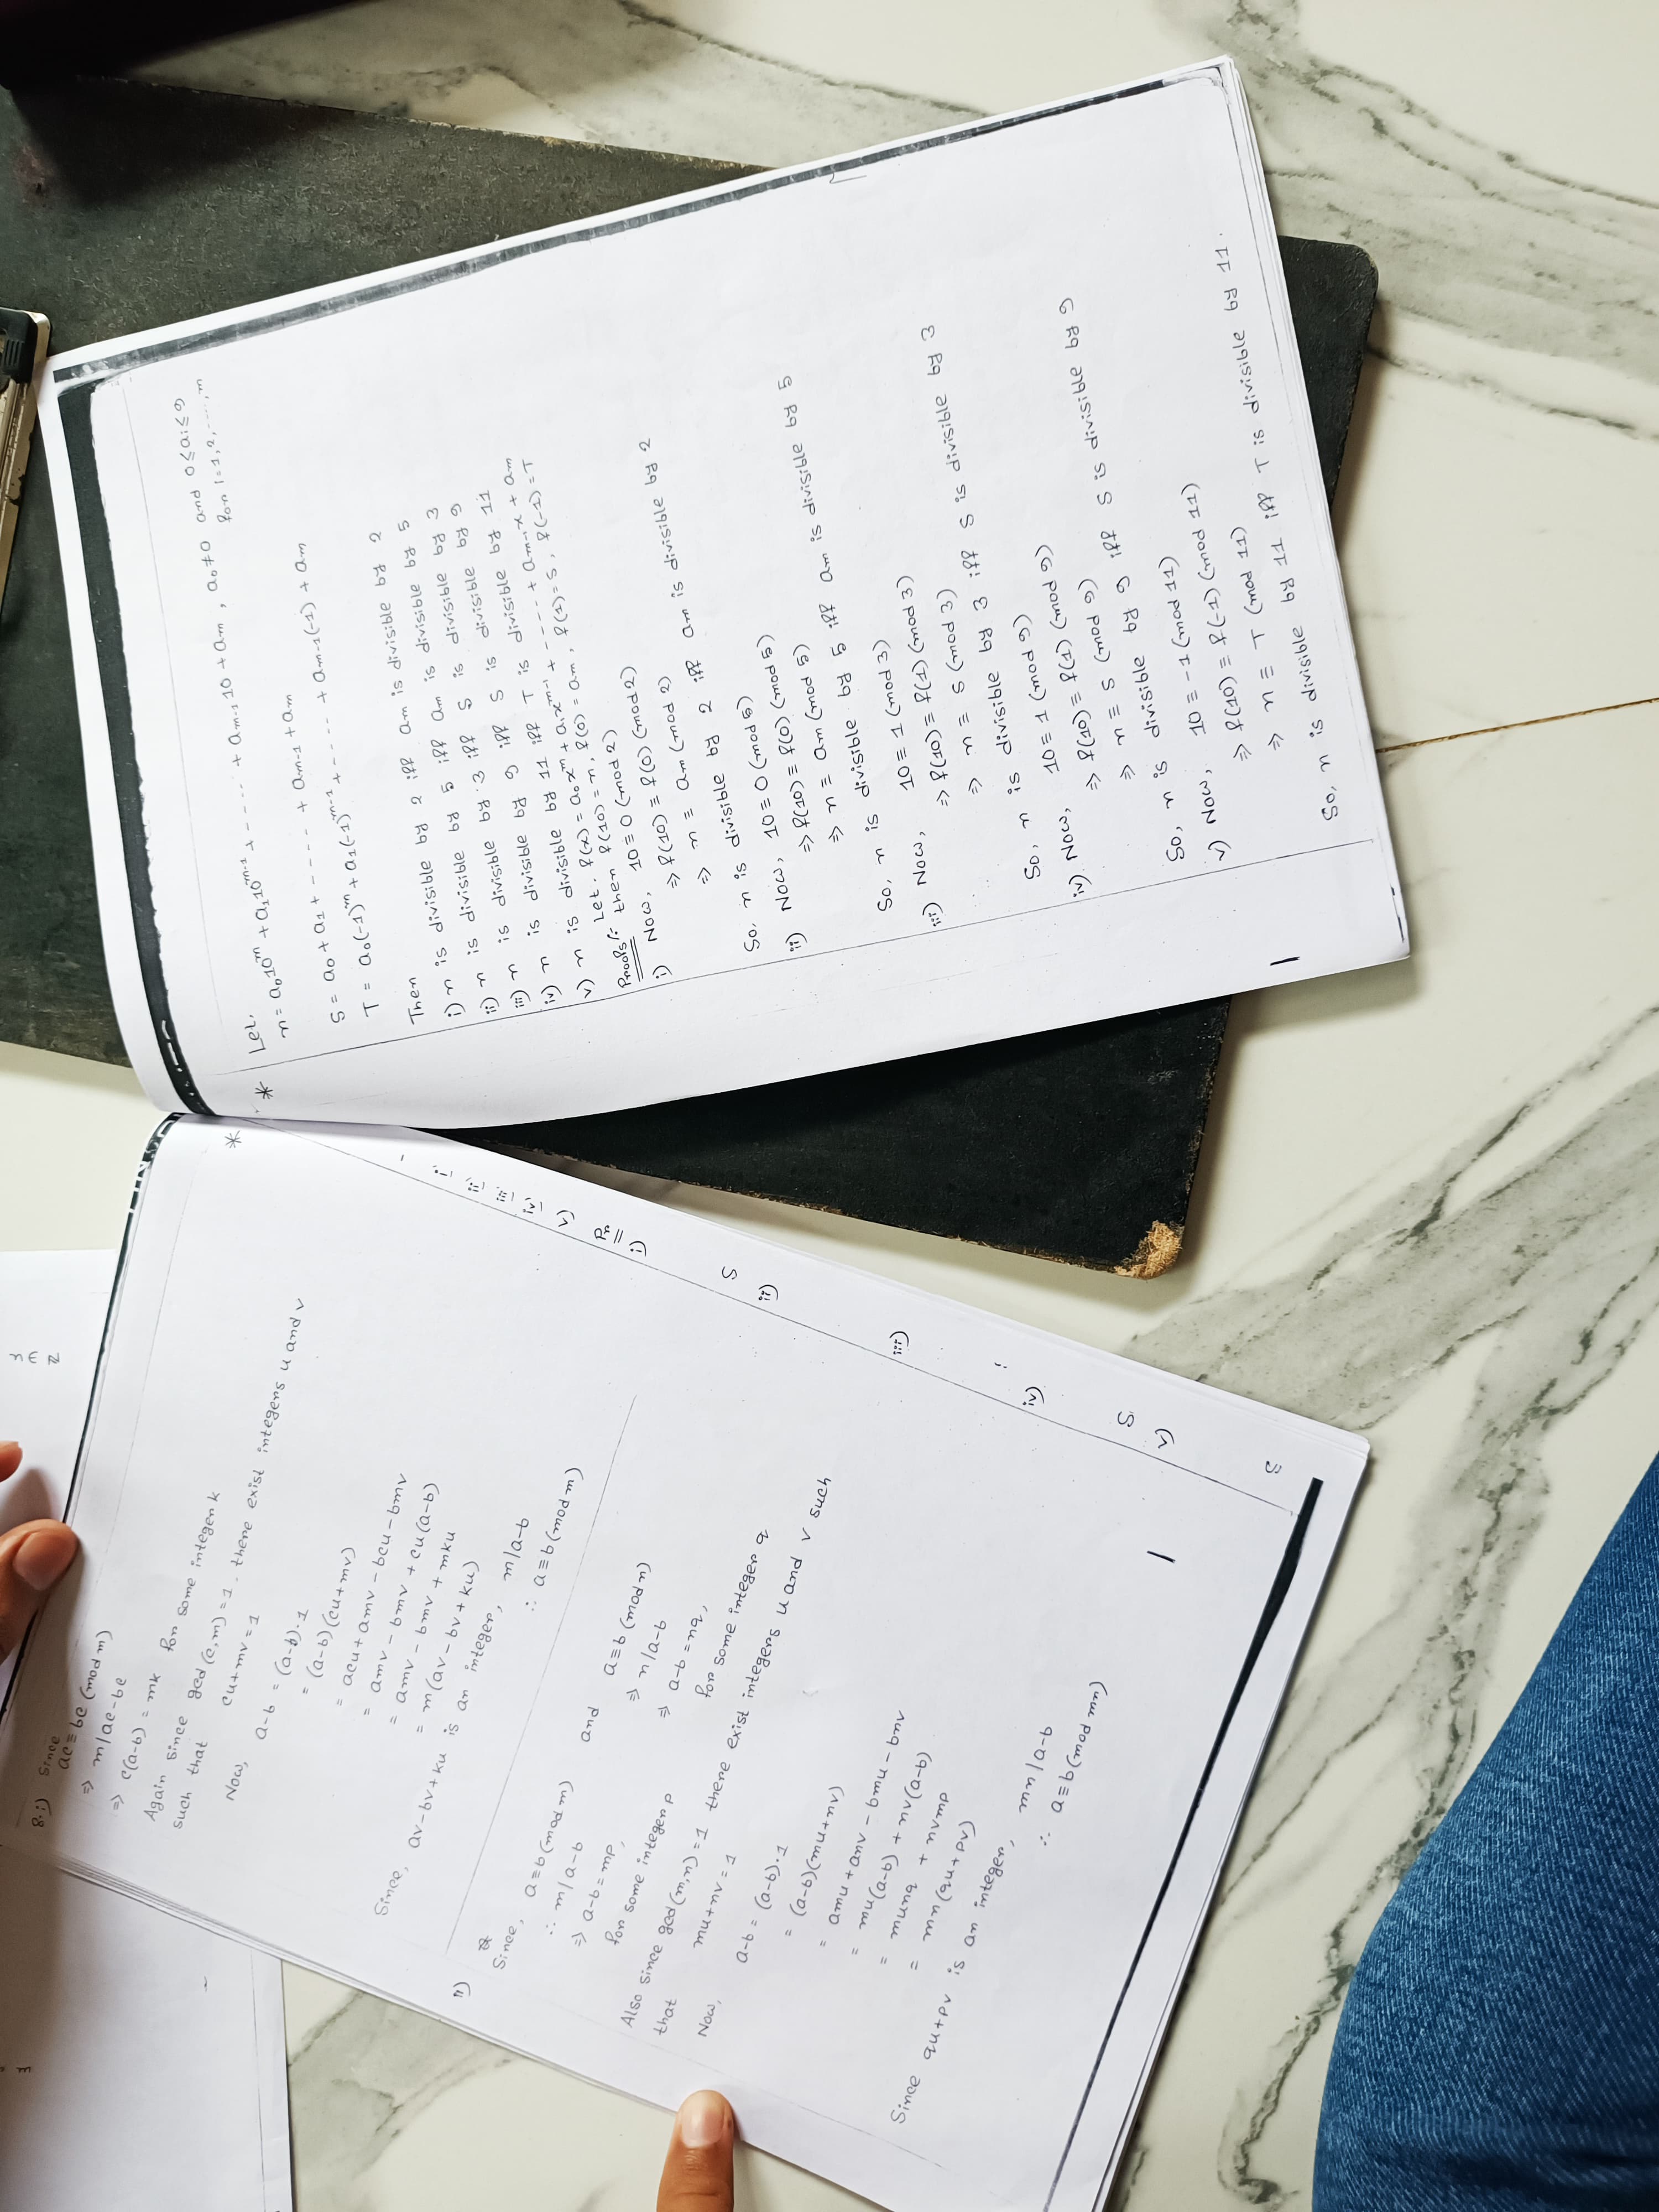 8. i) Since
ac ≡ bc (mod m)
⇒ m/ac-bc
⇒ c(a-b) = mk for some integer k
Again since gcd (c,m) = 1. there exist integers u and v
such that cu+mv = 1
Now,
a-b = (a-b)·1
= (a-b)(cu+mv)
= acu + amv - bcu - bmv
= amv - bmv + cu(a-b)
= amv - bmv + mku
= m(av - bv + ku)
Since, av-bv+ku is an integer, m/a-b
∴ a≡b(mod m)
ii)
Since, a≡b(mod m) and a≡b (mod n)
∴ m/a-b ⇒ n/a-b
⇒ a-b = mp, ⇒ a-b = nq,
for some integer p for some integer q
Also since gcd(m,n) = 1 there exist integers u and v such
that mu+nv = 1
Now,
a-b = (a-b)·1
= (a-b)(mu+nv)
= amu + anv - bmu - bnv
= mu(a-b) + nv(a-b)
= munq + nvmp
= mn(qu+pv)
Since qu+pv is an integer, mn/a-b
∴ a≡b(mod mn)
*
i
ii
iii
iv
v)
Pr
i)
S
ii)
iii)
iv)
S
v)
*
Let.
n = a₀10ᵐ + a₁10ᵐ⁻¹ + ---- + aₘ₋₁10 + aₘ, a₀≠0 and 0≤aᵢ≤9
for i=1,2,----,m
S = a₀ + a₁ + ---- + aₘ₋₁ + aₘ
T = a₀(-1)ᵐ + a₁(-1)ᵐ⁻¹ + ---- + aₘ₋₁(-1) + aₘ
Then
i) n is divisible by 2 iff aₘ is divisible by 2
ii) n is divisible by 5 iff aₘ is divisible by 5
iii) n is divisible by 3 iff S is divisible by 3
iv) n is divisible by 9 iff S is divisible by 9
v) n is divisible by 11 iff T is divisible by 11
Let. f(x) = a₀xᵐ + a₁xᵐ⁻¹ + ---- + aₘ₋₁x + aₘ
Proofs:- then f(10) = n, f(0) = aₘ, f(1) = S, f(-1) = T
i) Now, 10≡0 (mod 2)
⇒ f(10) ≡ f(0) (mod 2)
⇒ n ≡ aₘ (mod 2)
So, n is divisible by 2 iff aₘ is divisible by 2
ii) Now, 10≡0 (mod 5)
⇒ f(10) ≡ f(0) (mod 5)
⇒ n ≡ aₘ (mod 5)
So, n is divisible by 5 iff aₘ is divisible by 5
iii) Now, 10≡1 (mod 3)
⇒ f(10) ≡ f(1) (mod 3)
⇒ n ≡ S (mod 3)
So, n is divisible by 3 iff S is divisible by 3
iv) Now, 10≡1 (mod 9)
⇒ f(10) ≡ f(1) (mod 9)
⇒ n ≡ S (mod 9)
So, n is divisible by 9 iff S is divisible by 9
v) Now, 10 ≡ -1 (mod 11)
⇒ f(10) ≡ f(-1) (mod 11)
⇒ n ≡ T (mod 11)
So, n is divisible by 11 iff T is divisible by 11.